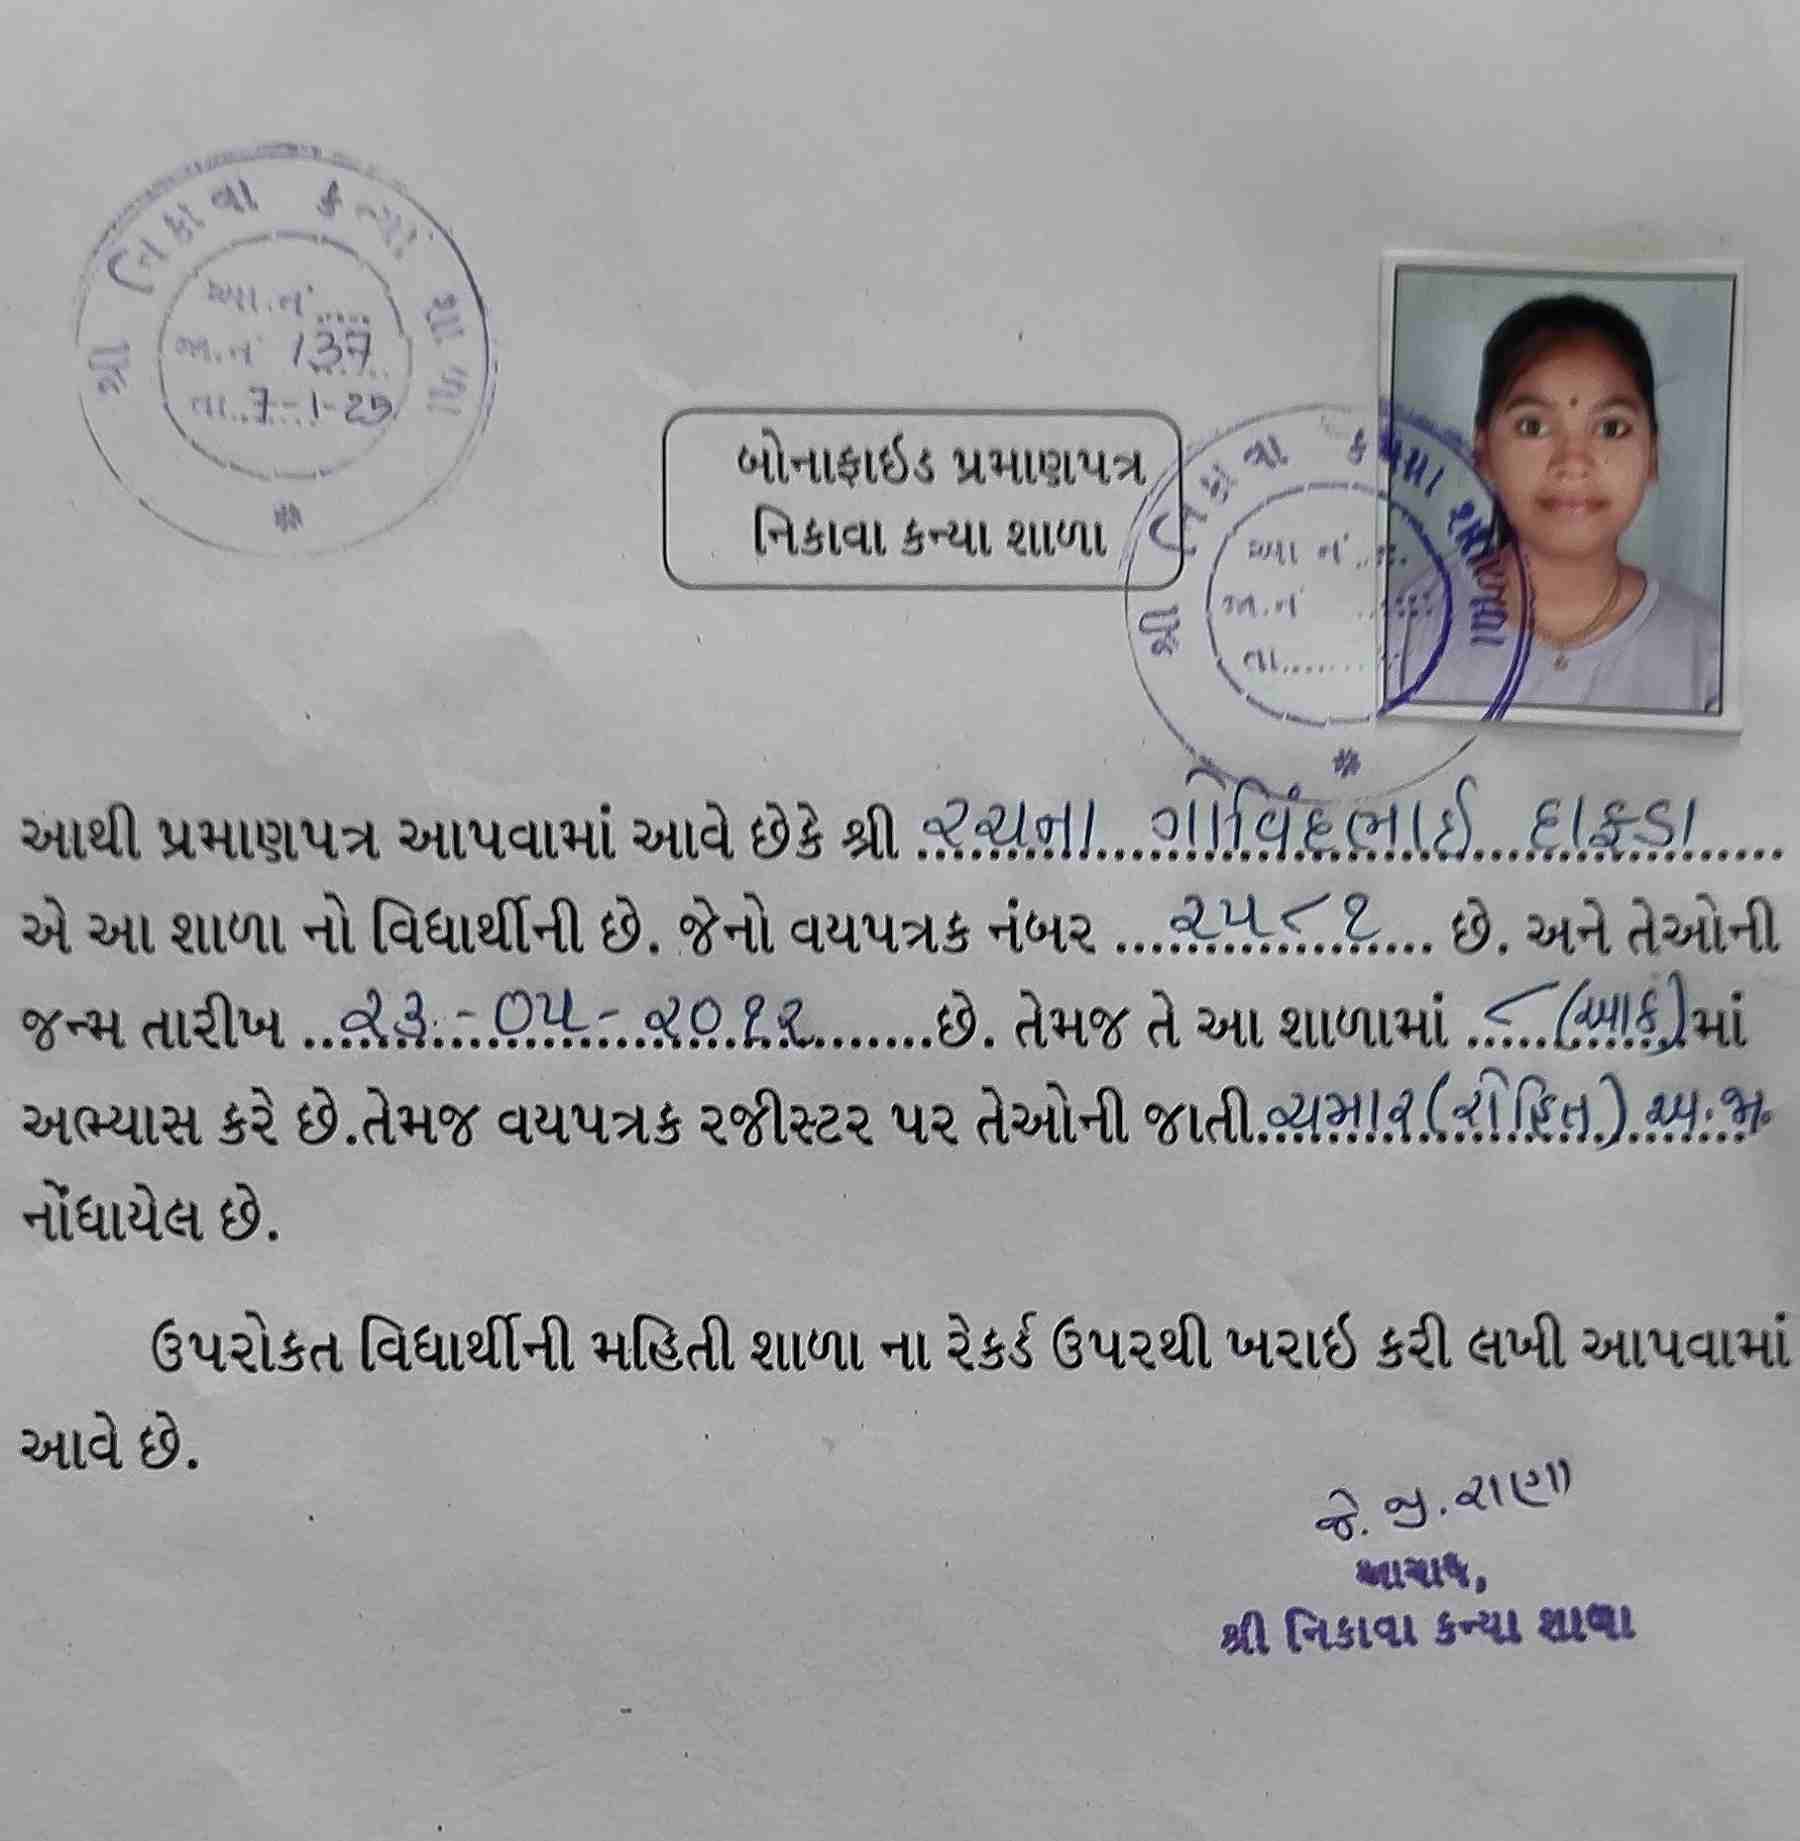 શ્રી નિકાવા કન્યા શાળા
આ.નં.....
જા.નં 137
તા..7-1-25
બોનાફાઈડ પ્રમાણપત્ર
નિકાવા કન્યા શાળા
શ્રી નિકાવા કન્યા શાળા
આ નં.....
જા.નં ......
તા.........
આથી પ્રમાણપત્ર આપવામાં આવે છેકે શ્રી રચના ગોવિંદભાઈ દાફડા
એ આ શાળા નો વિધાર્થીની છે. જેનો વયપત્રક નંબર ૨૫૮૧ છે. અને તેઓની
જન્મ તારીખ ૨૩-૦૫-૨૦૧૨ છે. તેમજ તે આ શાળામાં ૮ (આઠ) માં
અભ્યાસ કરે છે.તેમજ વયપત્રક રજીસ્ટર પર તેઓની જાતી ચમાર (રોહિત) અ.જા.
નોંધાયેલ છે.
ઉપરોકત વિધાર્થીની મહિતી શાળા ના રેકર્ડ ઉપરથી ખરાઇ કરી લખી આપવામાં
આવે છે.
જે. જી. રાણા
આચાર્ય,
શ્રી નિકાવા કન્યા શાળા